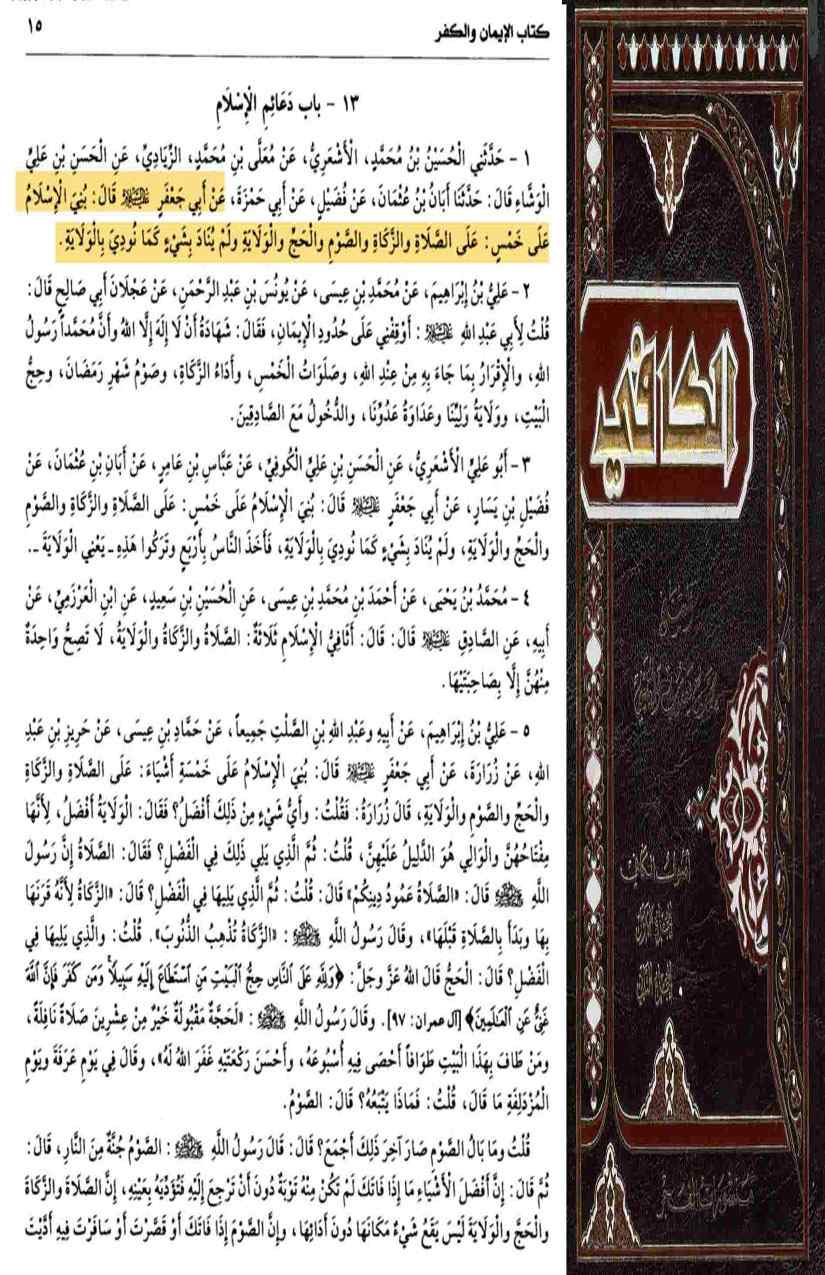 كتاب الإيمان والكفر
١٥
١٣ - باب دَعَائِمِ الْإِسْلَامِ
١ - حَدَّثَنِي الْحُسَيْنُ بْنُ مُحَمَّدٍ، الْأَشْعَرِيُّ، عَنْ مُعَلَّى بْنِ مُحَمَّدٍ، الزِّيَادِيِّ، عَنِ الْحَسَنِ بْنِ عَلِيٍّ
الْوَشَّاءِ قَالَ: حَدَّثَنَا أَبَانُ بْنُ عُثْمَانَ، عَنْ فُضَيْلٍ، عَنْ أَبِي حَمْزَةَ، عَنْ أَبِي جَعْفَرٍ عَلَيْهِ السَّلَامُ قَالَ: بُنِيَ الْإِسْلَامُ
عَلَى خَمْسٍ: عَلَى الصَّلَاةِ وَالزَّكَاةِ وَالصَّوْمِ وَالْحَجِّ وَالْوَلَايَةِ وَلَمْ يُنَادَ بِشَيْءٍ كَمَا نُودِيَ بِالْوَلَايَةِ.
٢ - عَلِيُّ بْنُ إِبْرَاهِيمَ، عَنْ مُحَمَّدِ بْنِ عِيسَى، عَنْ يُونُسَ بْنِ عَبْدِ الرَّحْمَنِ، عَنْ عَجْلَانَ أَبِي صَالِحٍ قَالَ:
قُلْتُ لِأَبِي عَبْدِ اللهِ عَلَيْهِ السَّلَامُ: أَوْقِفْنِي عَلَى حُدُودِ الْإِيمَانِ، فَقَالَ: شَهَادَةُ أَنْ لَا إِلَهَ إِلَّا اللهُ وَأَنَّ مُحَمَّداً رَسُولُ
اللهِ، وَالْإِقْرَارُ بِمَا جَاءَ بِهِ مِنْ عِنْدِ اللهِ، وَصَلَوَاتُ الْخَمْسِ، وَأَدَاءُ الزَّكَاةِ، وَصَوْمُ شَهْرِ رَمَضَانَ، وَحِجُّ
الْبَيْتِ، وَوَلَايَةُ وَلِيِّنَا وَعَدَاوَةُ عَدُوِّنَا، وَالدُّخُولُ مَعَ الصَّادِقِينَ.
٣ - أَبُو عَلِيٍّ الْأَشْعَرِيُّ، عَنِ الْحَسَنِ بْنِ عَلِيٍّ الْكُوفِيِّ، عَنْ عَبَّاسِ بْنِ عَامِرٍ، عَنْ أَبَانِ بْنِ عُثْمَانَ، عَنْ
فُضَيْلِ بْنِ يَسَارٍ، عَنْ أَبِي جَعْفَرٍ عَلَيْهِ السَّلَامُ قَالَ: بُنِيَ الْإِسْلَامُ عَلَى خَمْسٍ: عَلَى الصَّلَاةِ وَالزَّكَاةِ وَالصَّوْمِ
وَالْحَجِّ وَالْوَلَايَةِ، وَلَمْ يُنَادَ بِشَيْءٍ كَمَا نُودِيَ بِالْوَلَايَةِ، فَأَخَذَ النَّاسُ بِأَرْبَعٍ وَتَرَكُوا هَذِهِ ـ يَعْنِي الْوَلَايَةَ ـ.
٤ - مُحَمَّدُ بْنُ يَحْيَى، عَنْ أَحْمَدَ بْنِ مُحَمَّدِ بْنِ عِيسَى، عَنِ الْحُسَيْنِ بْنِ سَعِيدٍ، عَنِ ابْنِ الْعَرْزَمِيِّ، عَنْ
أَبِيهِ، عَنِ الصَّادِقِ عَلَيْهِ السَّلَامُ قَالَ: قَالَ: أَثَافِيُّ الْإِسْلَامِ ثَلَاثَةٌ: الصَّلَاةُ وَالزَّكَاةُ وَالْوَلَايَةُ، لَا تَصِحُّ وَاحِدَةٌ
مِنْهُنَّ إِلَّا بِصَاحِبَتَيْهَا.
٥ - عَلِيُّ بْنُ إِبْرَاهِيمَ، عَنْ أَبِيهِ وَعَبْدِ اللهِ بْنِ الصَّلْتِ جَمِيعاً، عَنْ حَمَّادِ بْنِ عِيسَى، عَنْ حَرِيزِ بْنِ عَبْدِ
اللهِ، عَنْ زُرَارَةَ، عَنْ أَبِي جَعْفَرٍ عَلَيْهِ السَّلَامُ قَالَ: بُنِيَ الْإِسْلَامُ عَلَى خَمْسَةِ أَشْيَاءَ: عَلَى الصَّلَاةِ وَالزَّكَاةِ
وَالْحَجِّ وَالصَّوْمِ وَالْوَلَايَةِ، قَالَ زُرَارَةُ: فَقُلْتُ: وَأَيُّ شَيْءٍ مِنْ ذَلِكَ أَفْضَلُ؟ فَقَالَ: الْوَلَايَةُ أَفْضَلُ، لِأَنَّهَا
مِفْتَاحُهُنَّ وَالْوَالِي هُوَ الدَّلِيلُ عَلَيْهِنَّ، قُلْتُ: ثُمَّ الَّذِي يَلِي ذَلِكَ فِي الْفَضْلِ؟ فَقَالَ: الصَّلَاةُ إِنَّ رَسُولَ
اللَّهِ ﷺ قَالَ: «الصَّلَاةُ عَمُودُ دِينِكُمْ» قَالَ: قُلْتُ: ثُمَّ الَّذِي يَلِيهَا فِي الْفَضْلِ؟ قَالَ: «الزَّكَاةُ لِأَنَّهُ قَرَنَهَا
بِهَا وَبَدَأَ بِالصَّلَاةِ قَبْلَهَا»، وَقَالَ رَسُولُ اللَّهِ ﷺ: «الزَّكَاةُ تُذْهِبُ الذُّنُوبَ». قُلْتُ: وَالَّذِي يَلِيهَا فِي
الْفَضْلِ؟ قَالَ: الْحَجُّ قَالَ اللهُ عَزَّ وَجَلَّ: ﴿وَلِلَّهِ عَلَى النَّاسِ حِجُّ الْبَيْتِ مَنِ اسْتَطَاعَ إِلَيْهِ سَبِيلًا وَمَن كَفَرَ فَإِنَّ اللَّهَ
غَنِيٌّ عَنِ الْعَالَمِينَ﴾ [آل عمران: ٩٧]. وَقَالَ رَسُولُ اللَّهِ ﷺ: «لَحَجَّةٌ مَقْبُولَةٌ خَيْرٌ مِنْ عِشْرِينَ صَلَاةً نَافِلَةً،
وَمَنْ طَافَ بِهَذَا الْبَيْتِ طَوَافاً أَحْصَى فِيهِ أُسْبُوعَهُ، وَأَحْسَنَ رَكْعَتَيْهِ غَفَرَ اللهُ لَهُ»، وَقَالَ فِي يَوْمِ عَرَفَةَ وَيَوْمِ
الْمُزْدَلِفَةِ مَا قَالَ، قُلْتُ: فَمَاذَا يَتْبَعُهُ؟ قَالَ: الصَّوْمُ.
قُلْتُ وَمَا بَالُ الصَّوْمِ صَارَ آخِرَ ذَلِكَ أَجْمَعَ؟ قَالَ: قَالَ رَسُولُ اللَّهِ ﷺ: الصَّوْمُ جُنَّةٌ مِنَ النَّارِ، قَالَ:
ثُمَّ قَالَ: إِنَّ أَفْضَلَ الْأَشْيَاءِ مَا إِذَا فَاتَكَ لَمْ تَكُنْ مِنْهُ تَوْبَةٌ دُونَ أَنْ تَرْجِعَ إِلَيْهِ فَتُؤَدِّيَهُ بِعَيْنِهِ، إِنَّ الصَّلَاةَ وَالزَّكَاةَ
وَالْحَجَّ وَالْوَلَايَةَ لَيْسَ يَقَعُ شَيْءٌ مَكَانَهَا دُونَ أَدَائِهَا، وَإِنَّ الصَّوْمَ إِذَا فَاتَكَ أَوْ قَصَّرْتَ أَوْ سَافَرْتَ فِيهِ أَدَّيْتَ
الكافي
أصول الكافي
منشورات الفجر